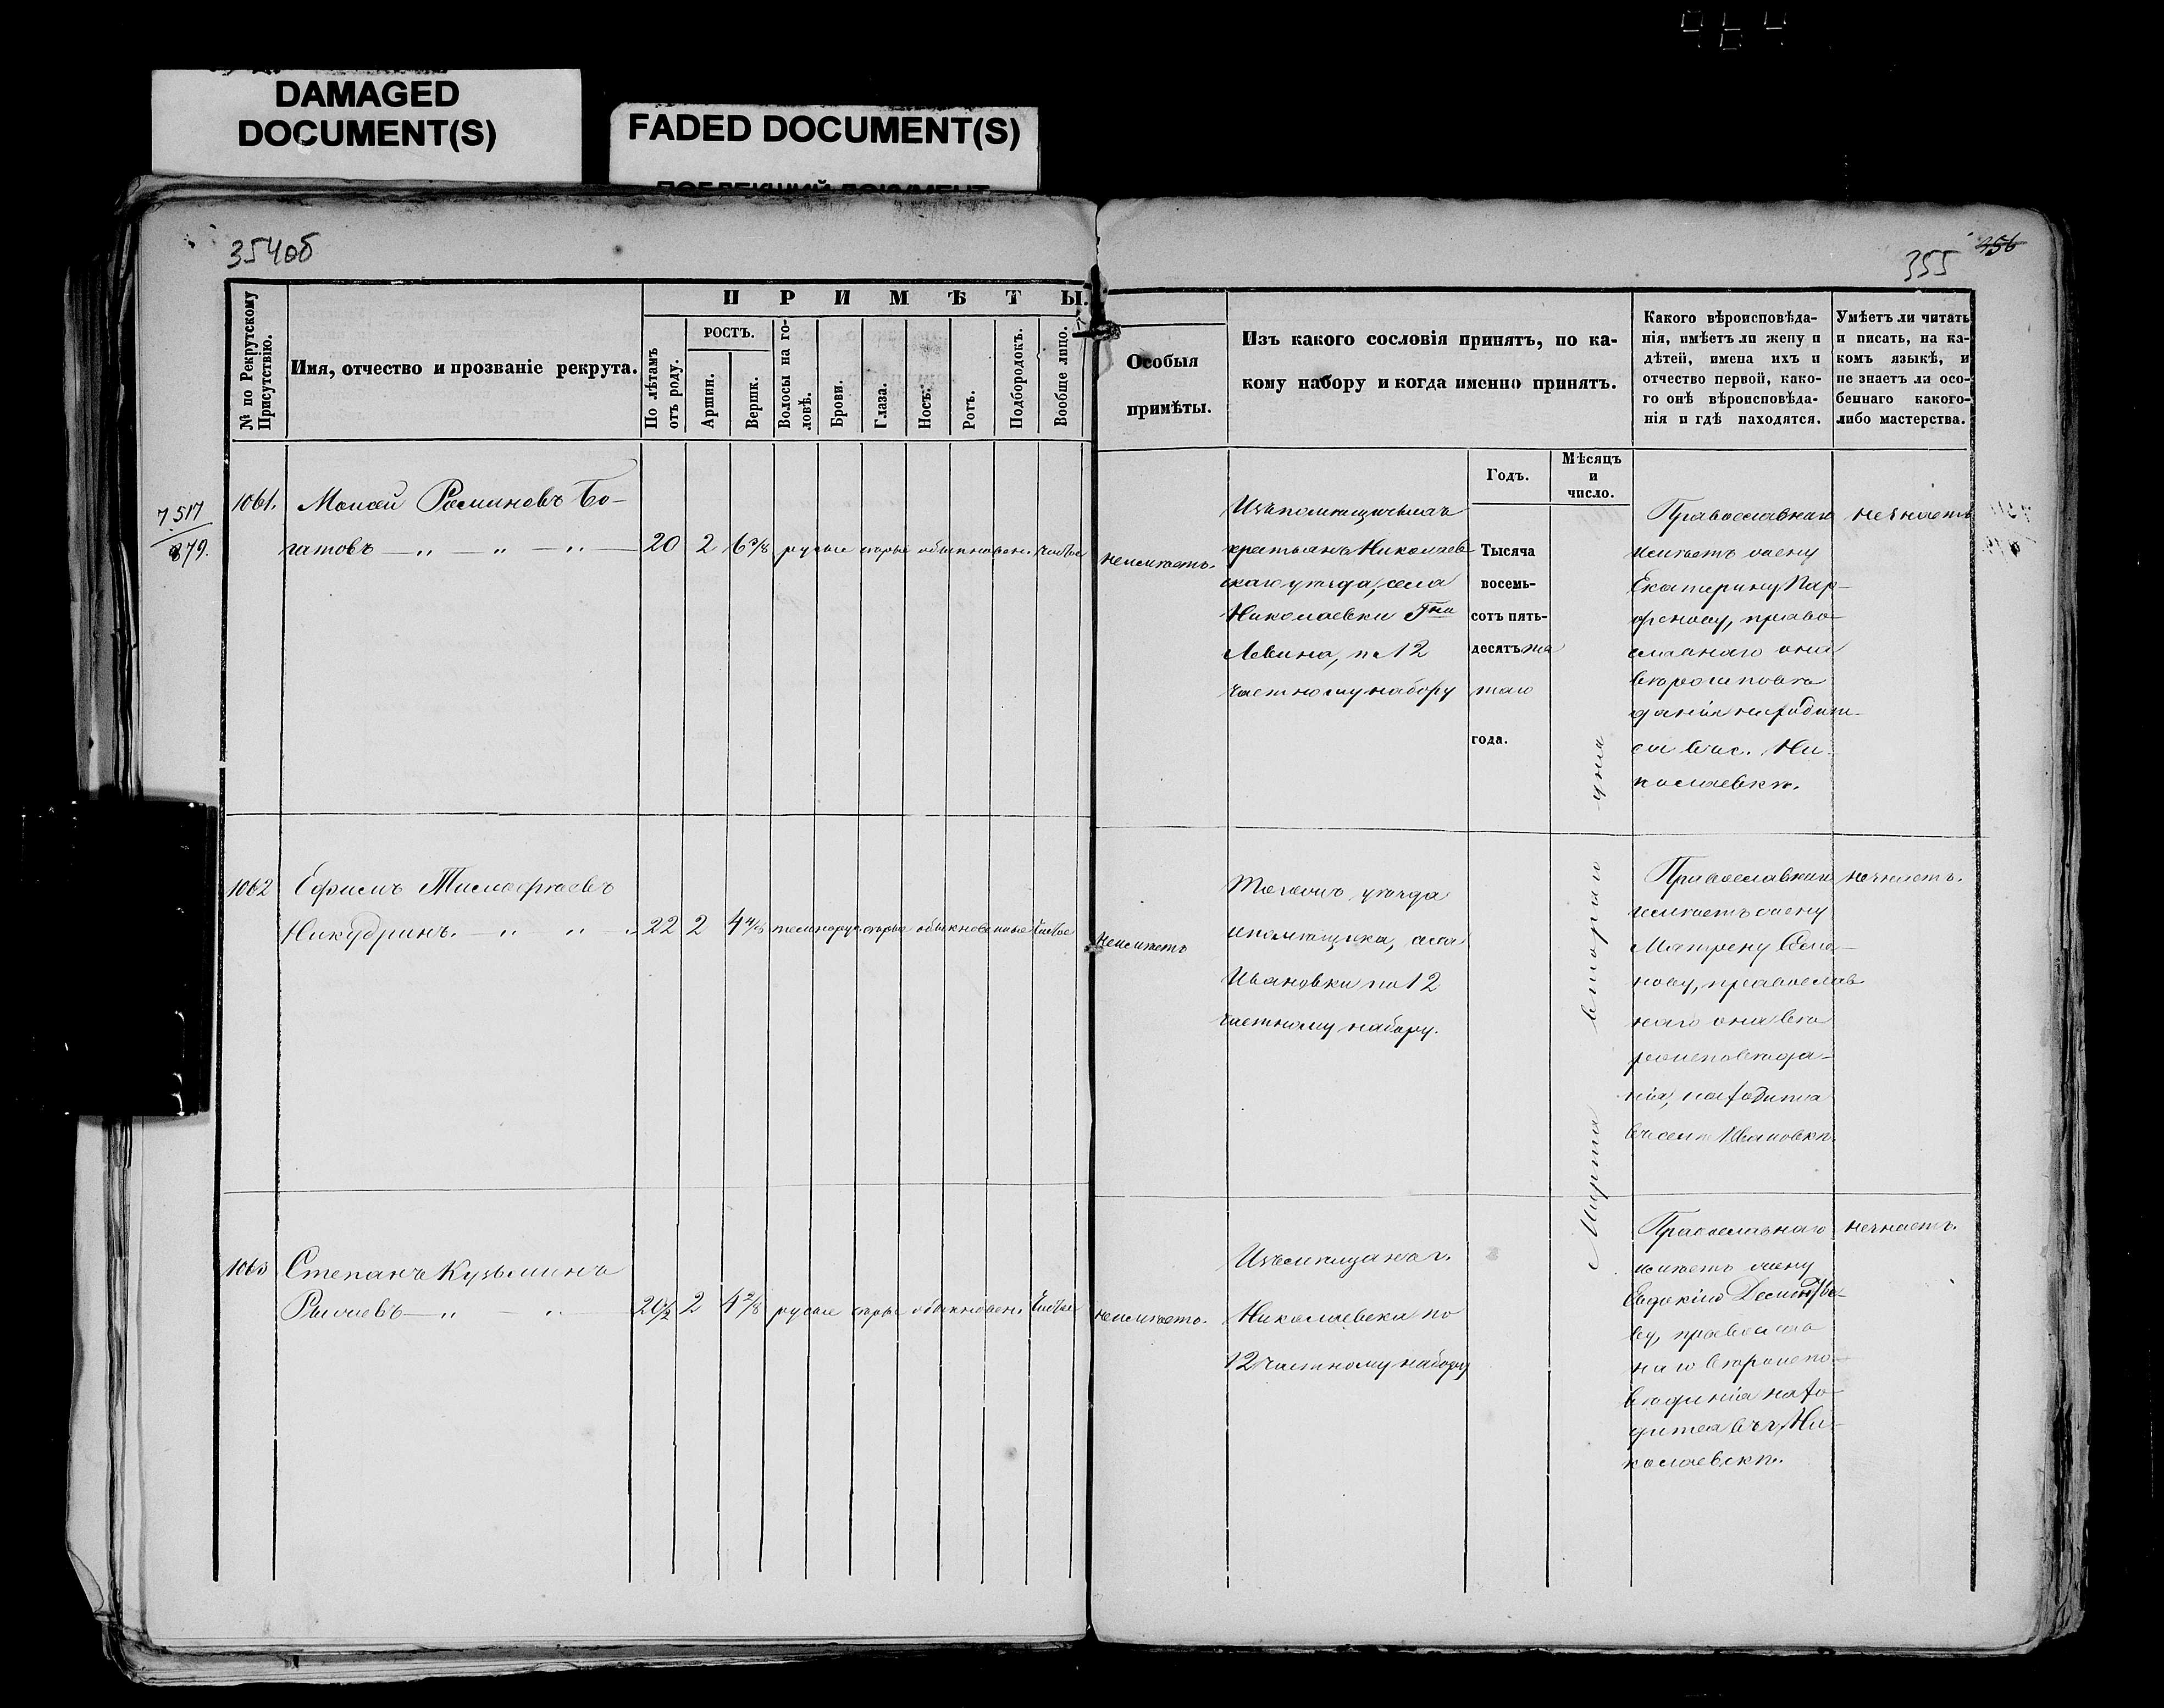 DAMAGED
DOCUMENT(S)
FADED DOCUMENT(S)
354об
355
456
№ по Рекрутскому
Присутствію.
Имя, отчество и прозваніе рекрута.
ПРИМѢТЫ.
По лѣтамъ
отъ роду.
РОСТЪ.
Аршин.
Вершк.
Волосы на го-
ловѣ.
Брови.
Глаза.
Носъ.
Ротъ.
Подбородокъ.
Вообще лицо.
Особыя
примѣты.
Изъ какого сословія принятъ, по ка-
кому набору и когда именно принятъ.
Какого вѣроисповѣда-
нія, имѣетъ ли жену и
дѣтей, имена ихъ и
отчество первой, како-
го онѣ вѣроисповѣда-
нія и гдѣ находятся.
Умѣетъ ли читать
и писать, на ка-
комъ языкѣ, и
не знаетъ ли осо-
беннаго какого-
либо мастерства.
Годъ.
Мѣсяцъ
и
число.
7517
879.
1061.
Моисей Романовъ Бо-
гатовъ — „ — „ — „ —
20 2 6 3/8 русые сѣрые обыкновен. чистое
неимѣетъ.
Изъ помѣщичьихъ
крестьянъ Николаев
скаго уѣзда, села
Николаевки Гна
Левина, по 12
частному набору
Тысяча
восемь-
сотъ пять-
десятъ пя
таго
года.
Марта втораго дня
Православнаго
имѣетъ жену
Екатерину Пар-
фенову, право-
славнаго она
вѣроисповѣ
данія находит-
ся въ с. Ни-
колаевкѣ.
незнаетъ
1062
Ефимъ Тимофѣевъ
Никудринъ. — „ „ — „
22 2 4 4/8 темнорус. сѣрые обыкновенные чистое
неимѣетъ
Тогожъ уѣзда
ипомѣщика, села
Ивановки по 12
частному набору.
Православнаго
имѣетъ жену
Матрену Семе-
нову, православ
наго она вѣ
роисповѣда-
нія, находится
въ селѣ Ивановкѣ.
незнаетъ.
1063
Степанъ Кузьминъ
— „ — „ —
20 1/2 2 4 2/8 русые сѣрые обыкновен. чистое
неимѣетъ.
Изъ мѣщанъ г.
Николаевска по
12 частному набору
Православнаго
имѣетъ жену
Евдокію
ву, православ
наго вѣроиспо-
вѣданія нахо-
дится въ г. Ни-
колаевскѣ.
незнаетъ.